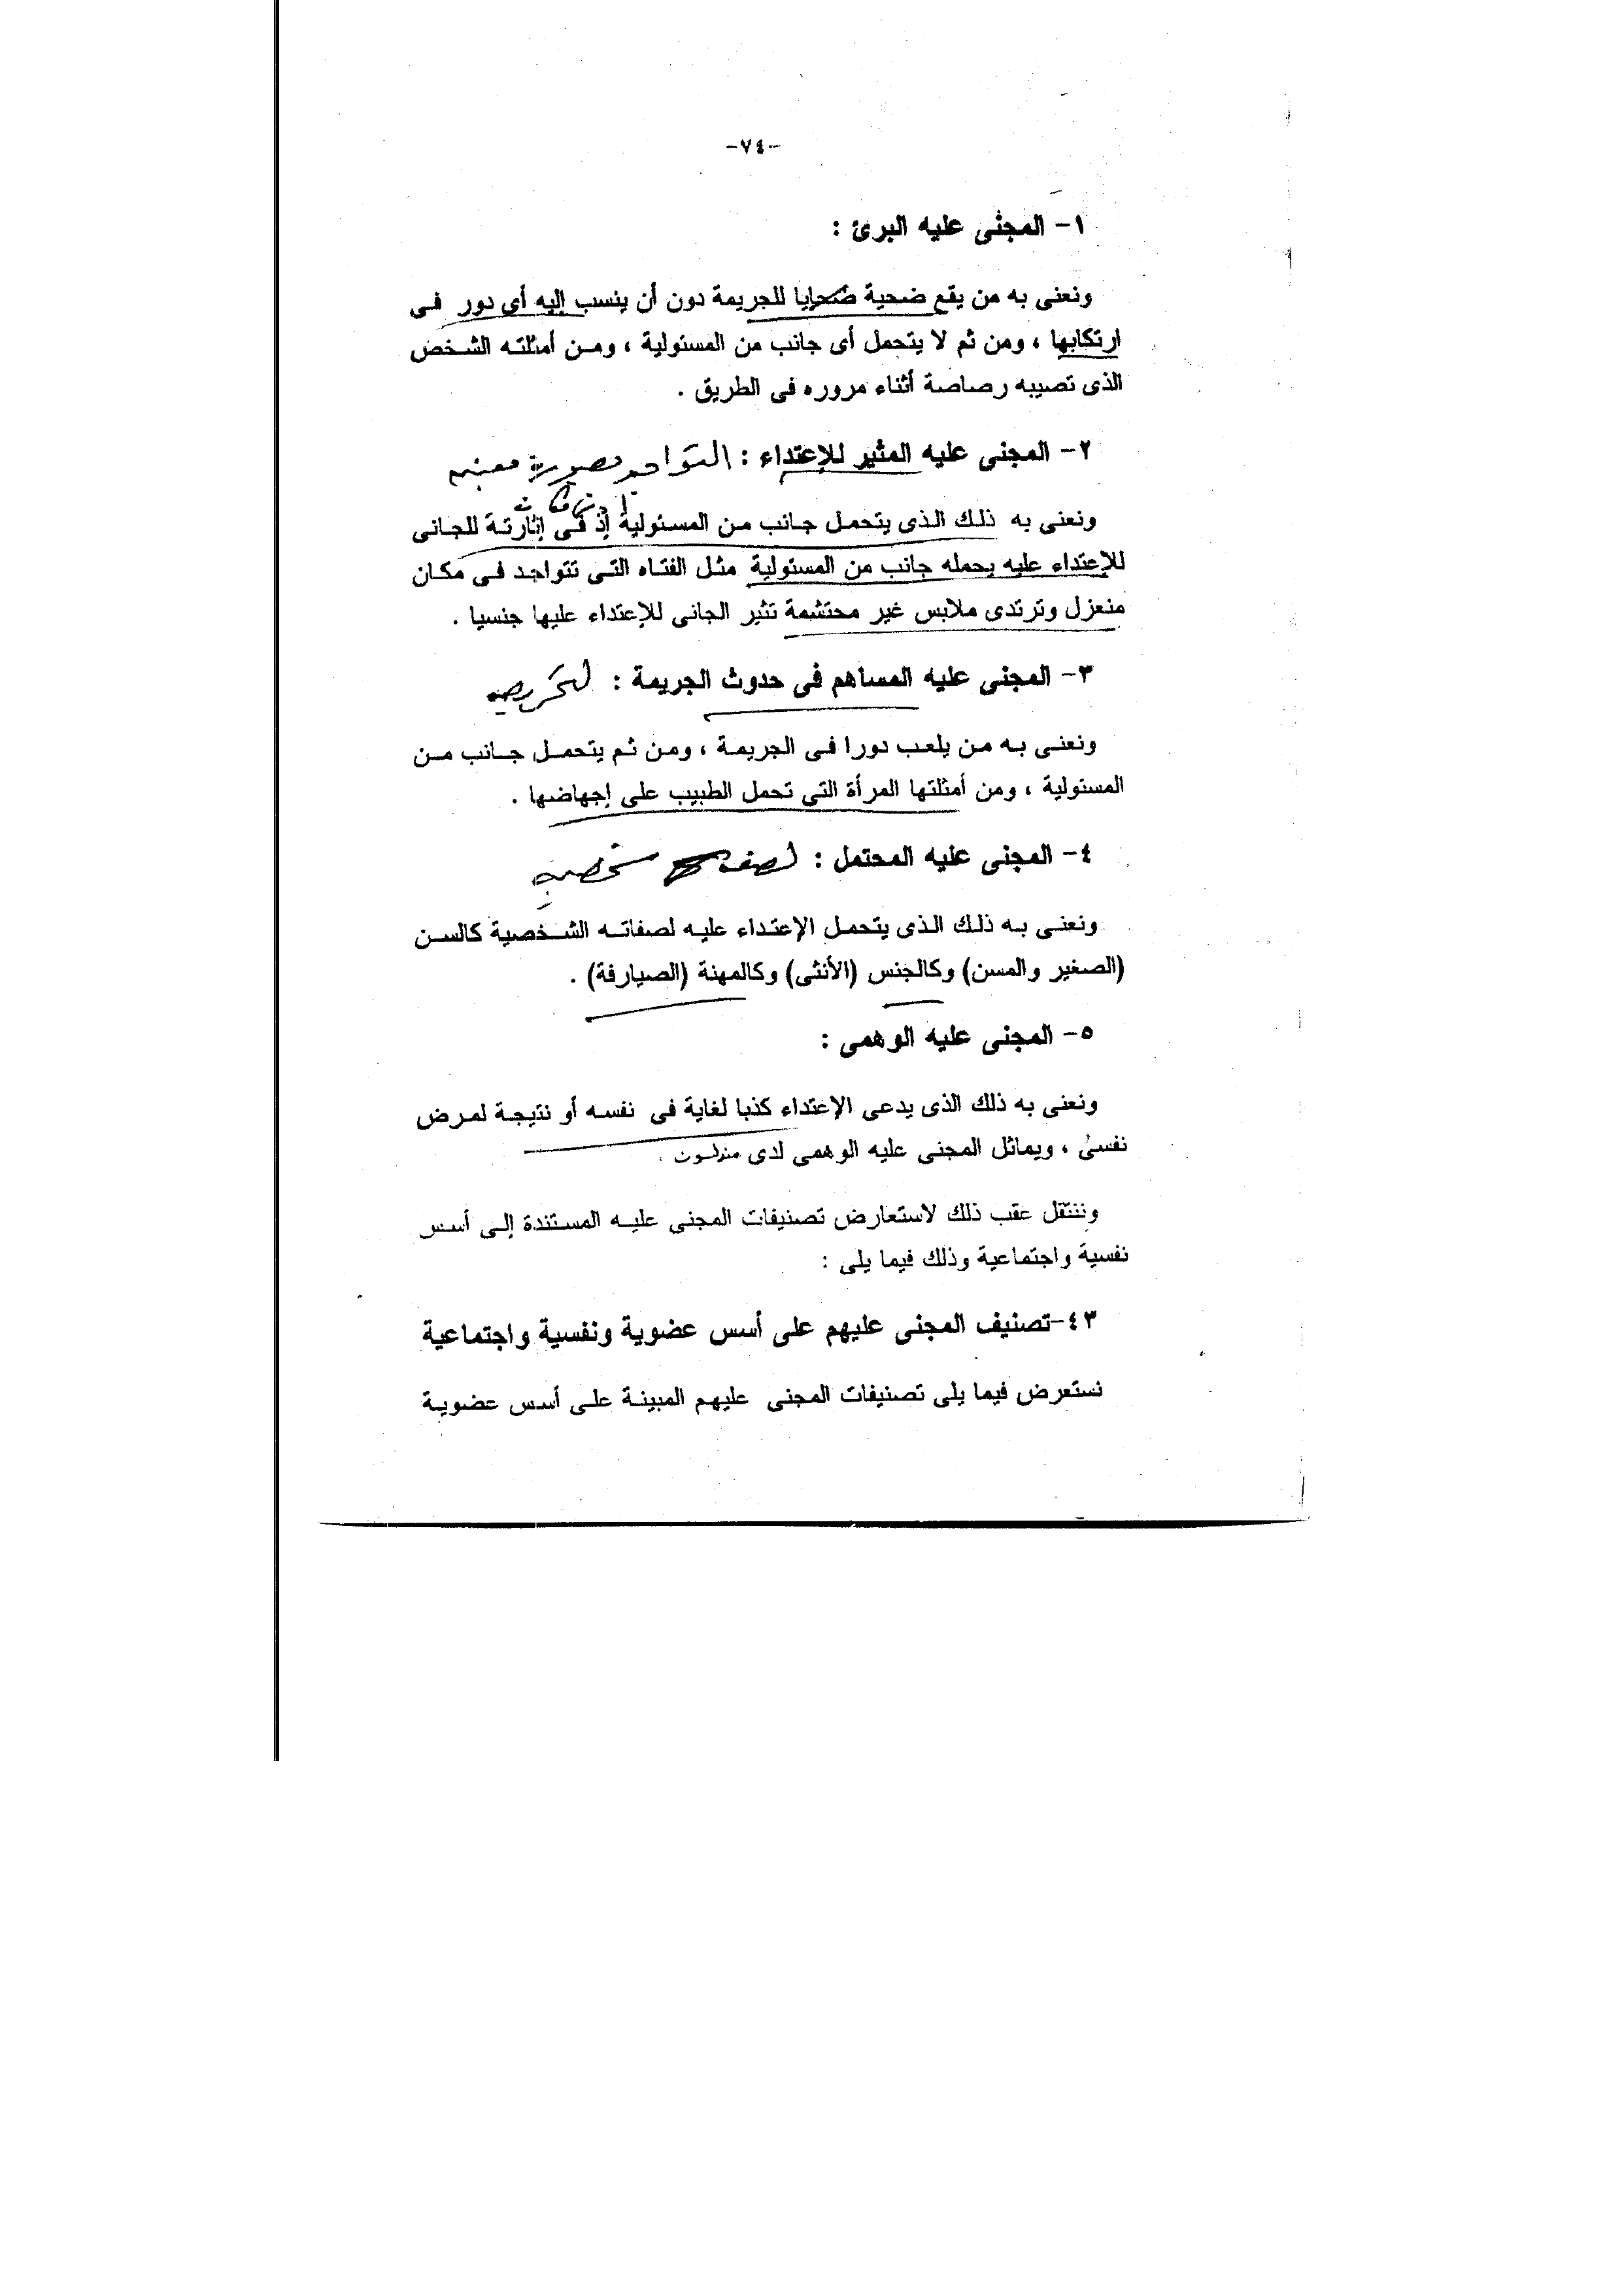 -٧٤-
١- المجنى عليه البرئ :
ونعنى به من يقع ضحية ضحايا للجريمة دون أن ينسب إليه أى دور فى
ارتكابها ، ومن ثم لا يتحمل أى جانب من المسئولية ، ومن أمثلته الشخص
الذى تصيبه رصاصة أثناء مروره فى الطريق .
٢- المجنى عليه المثير للإعتداء : التواجد بصورة معينه
ونعنى به ذلك الذى يتحمل جانب من المسئولية إذ فى إثارتة للجانى
للإعتداء عليه يحمله جانب من المسئولية مثل الفتاه التى تتواجد فى مكان
منعزل وترتدى ملابس غير محتشمة تثير الجانى للإعتداء عليها جنسيا .
٣- المجنى عليه المساهم فى حدوث الجريمة :
ونعنى به من يلعب دورا فى الجريمة ، ومن ثم يتحمل جانب من
المسئولية ، ومن أمثلتها المرأة التى تحمل الطبيب على إجهاضها .
٤- المجنى عليه المحتمل : لصفة شخصية
ونعنى به ذلك الذى يتحمل الإعتداء عليه لصفاته الشخصية كالسن
(الصغير والمسن) وكالجنس (الأنثى) وكالمهنة (الصيارفة) .
٥- المجنى عليه الوهمى :
ونعنى به ذلك الذى يدعى الإعتداء كذبا لغاية فى نفسه أو نتيجة لمرض
نفسى ، ويماثل المجنى عليه الوهمى لدى مندلسون .
وننتقل عقب ذلك لاستعارض تصنيفات المجنى عليه المستندة إلى أسس
نفسية واجتماعية وذلك فيما يلى :
٤٣-تصنيف المجنى عليهم على أسس عضوية ونفسية واجتماعية
نستعرض فيما يلى تصنيفات المجنى عليهم المبينة على أسس عضوية